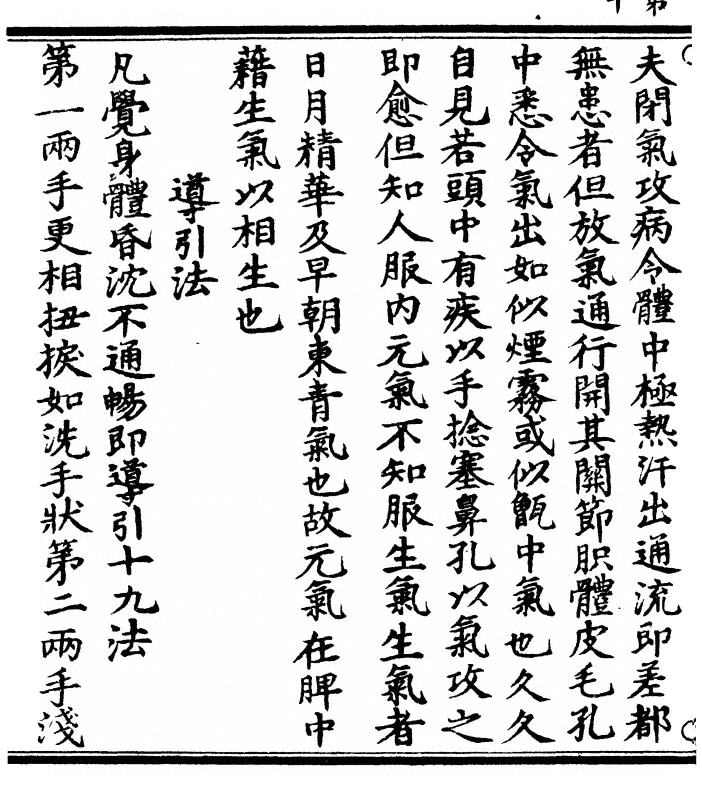 夫閉氣攻病令體中極熱汗出通流即差都
無患者但放氣通行開其關節肢體皮毛孔
中悉令氣出如似煙霧或似甑中氣也久久
自見若頭中有疾以手捻塞鼻孔以氣攻之
即愈但知人服內元氣不知服生氣生氣者
日月精華及早朝東青氣也故元氣在脾中
藉生氣以相生也
導引法
凡覺身體昏沈不通暢即導引十九法
第一兩手更相扭捩如洗手狀第二兩手淺